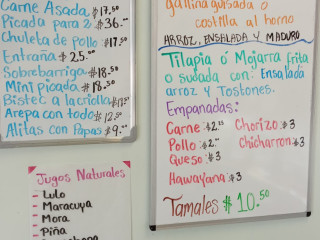 Carne Asada $17.50
Picada para 2 $36.00
Chuleta de pollo $17.50
Entraña $25.00
Sobrebarriga $18.50
Mini picada $18.50
Bistec a la criolla
Arepa con todo $12.50
Alitas con Papas $9.00
Jugos Naturales
- Lulo
- Maracuya
- Mora
- Piña
gallina guisada o
costilla al horno
ARROZ, ENSALADA Y MADURO
Tilapia ó Mojarra frita
o sudada con: Ensalada
arroz y Tostones.
Empanadas:
Carne $2.25 Chorizo $3
Pollo $2.25 Chicharron $3
Queso $3
Hawayana $3
Tamales $10.50